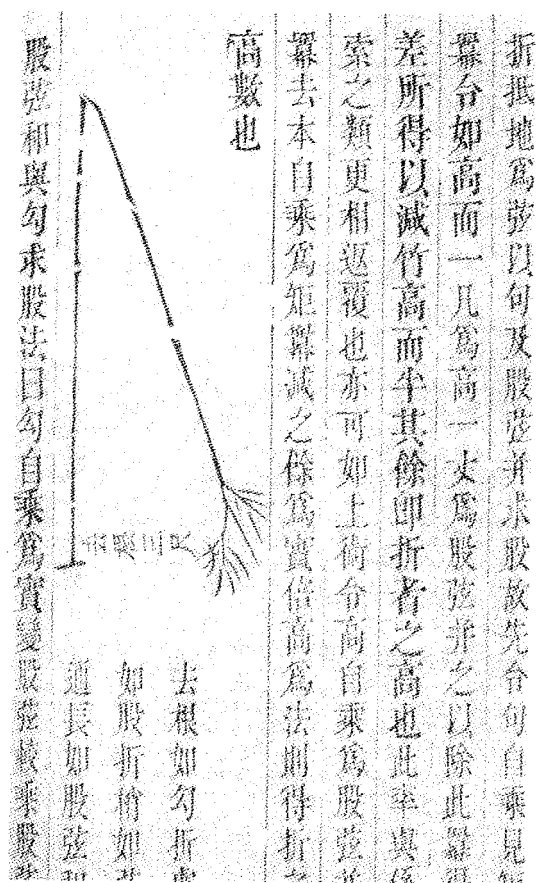 折抵地爲弦以句及股弦并求股故先令句自乘見矩
冪令如高而一凡爲高一丈爲股弦并之以除此冪得
差所得以減竹高而半其餘即折者之高也此率與係
索之類更相返覆也亦可如上術令高自乘爲股弦并
冪去本自乘爲矩冪減之餘爲實倍高爲法則得折之
高數也
去根三尺
去根如勾折處
如股折梢如弦
通長如股弦和
股弦和與勾求股法曰勾自乘爲實變股弦較乘股弦